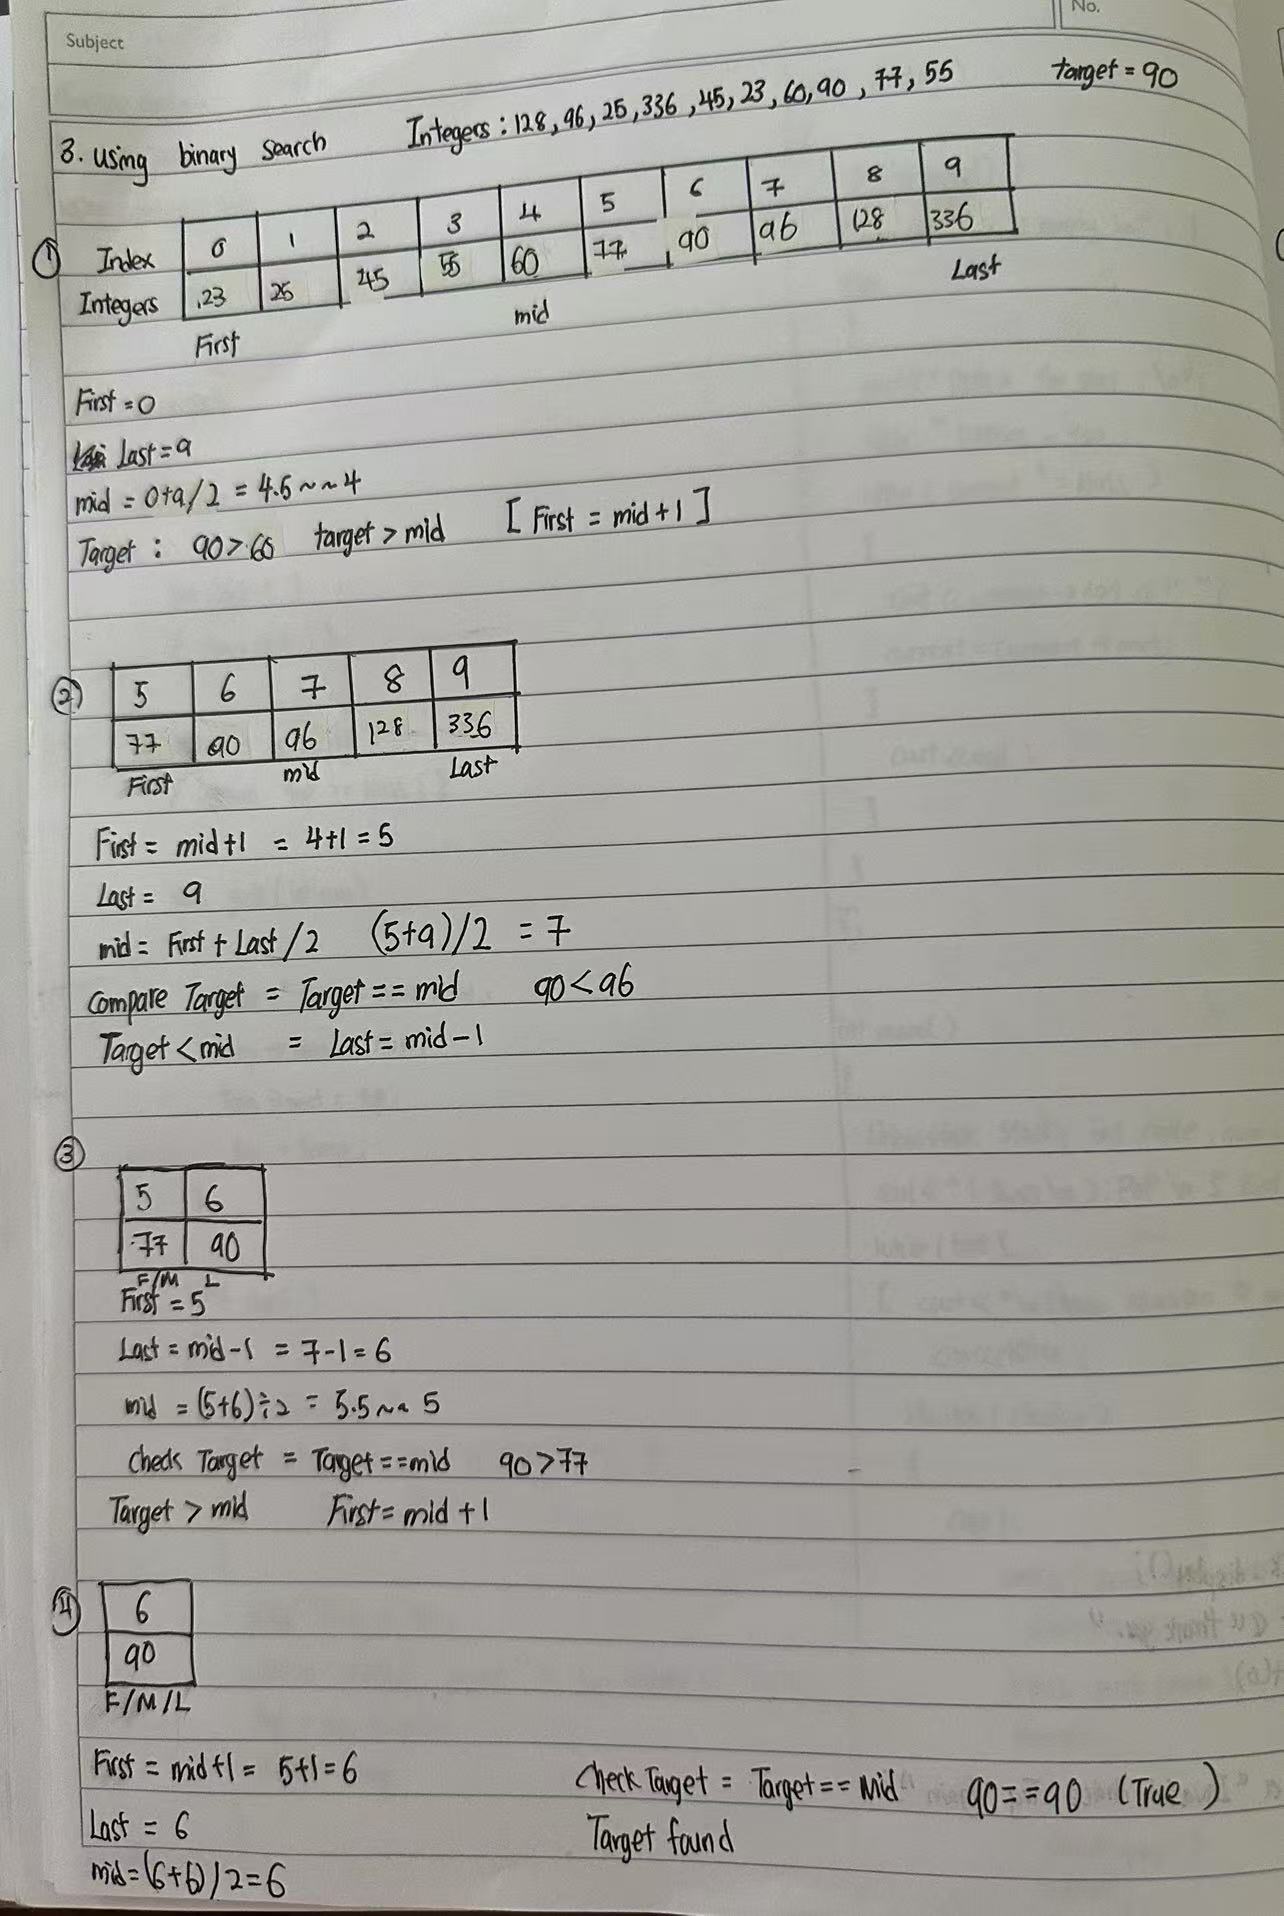 Subject
No.
3. using binary search Integers : 128, 96, 25, 336, 45, 23, 60, 90, 77, 55 target = 90
① Index 0 1 2 3 4 5 6 7 8 9
Integers 23 25 45 55 60 77 90 96 128 336
First mid Last
First = 0
Last = 9
mid = 0+9/2 = 4.5 ~~ 4
Target : 90 > 60 target > mid [First = mid+1]
② 5 6 7 8 9
77 90 96 128 336
First mid Last
First = mid+1 = 4+1 = 5
Last = 9
mid = First + Last / 2 (5+9)/2 = 7
Compare Target = Target == mid 90 < 96
Target < mid = Last = mid-1
③
5 6
77 90
F/M L
First = 5
Last = mid-1 = 7-1 = 6
mid = (5+6)÷2 = 5.5 ~~ 5
check Target = Target == mid 90 > 77
Target > mid First = mid+1
④ 6
90
F/M/L
First = mid+1 = 5+1 = 6 check Target = Target == Mid 90 == 90 (True)
Last = 6 Target found
mid = (6+6)/2 = 6